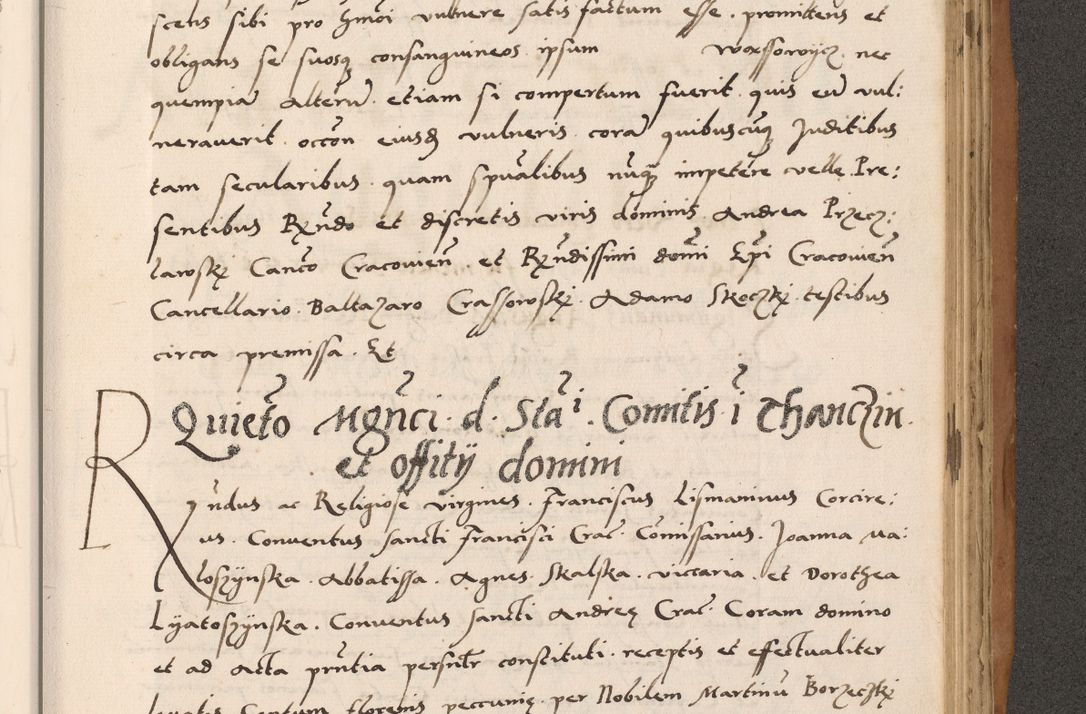 scens sibi pro hmõi vulnere satis factum esse . promittens et
obligans se suosq̃ consanguineos ipsum Woxssowycz nec
quempiã alterũ . etiam si compertum fuerit quis eũ vul:
neraverit occõn eiusd vulneris corã quibuscũq̃ Juditibus
tam secularibus quam spũalibus nũq̃ impetere velle. Pre:
sentibus Rx̃ndo et discretis viris dominis Andrea Przecz:
lawsky Canco Cracovieñ et Rx̃ndissimi domi Ep̃i Cracovieñ
Cancellario . Baltazaro Crassowsky . Adamo Skoczky testibus
circa premissa . Et
Quietõ Mgñci . d . Stã i . Comitis i Thanczin .
et offitij domini
Rx̃ndus ac Religiose virgines . Franciscus Lismaninus Corcire:
us . Conventus sancti Francisci Crac̃ Comissarius . Joanna Wa:
loszynska . Abbatissa . Agnes Skalska . viccaria . et Dorothea
Lyatoszynska . Conventus sancti Andreę Crac̃ Coram domino
et ad Acta prñtia persñlr constituti . receptis et effectualiter
levatis Centum florenis peccunię per Nobilem Martinũ Borzeczky